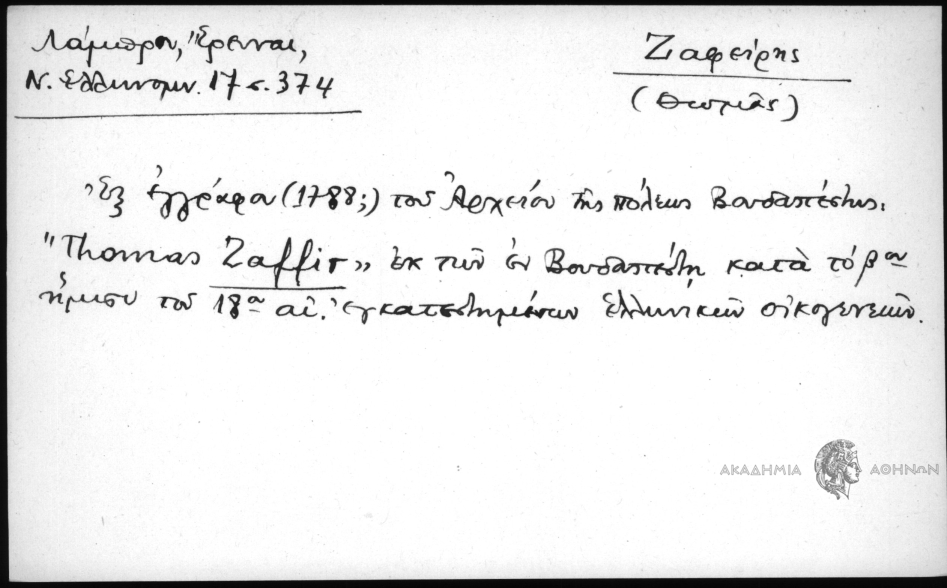 Λάμπρου, Ἔρευναι,
Ν. Ἑλληνομν. 17 σ. 374
Ζαφείρης
(Θωμᾶς)
Ἐξ ἐγγράφου (1788;) τοῦ Ἀρχείου τῆς πόλεως Βουδαπέστης:
"Thomas Zaffir" ἐκ τῶν ἐν Βουδαπέστῃ κατὰ τὸ βον
ἥμισυ τοῦ 18ου αἰ. ἐγκατεστημένων ἑλληνικῶν οἰκογενειῶν.
ΑΚΑΔΗΜΙΑ ΑΘΗΝΩΝ